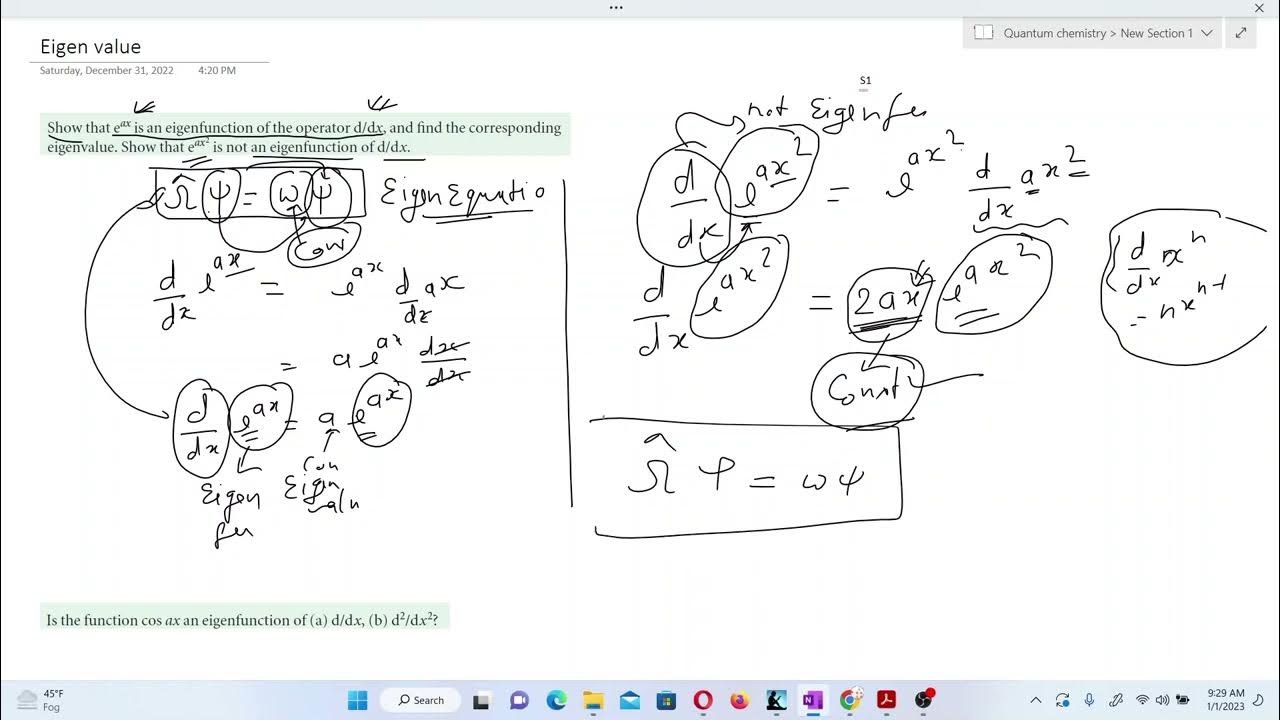 Quantum chemistry > New Section 1
Eigen value
Saturday, December 31, 2022 4:20 PM
S1
Show that e^ax is an eigenfunction of the operator d/dx, and find the corresponding
eigenvalue. Show that e^ax² is not an eigenfunction of d/dx.
Ω̂ ψ = ω ψ Eigen Equatio
d/dx e^ax = e^ax d/dx ax
= a e^ax dx/dx
d/dx e^ax = a e^ax
Eigen
Con
Eigen
not Eigenfu
d/dx e^ax² = e^ax² d/dx ax²
d/dx e^ax² = 2ax e^ax²
Const
d/dx x^n
= nx^n-1
Ω̂ ψ = ω ψ
Is the function cos ax an eigenfunction of (a) d/dx, (b) d²/dx²?
45°F
Fog
Search
9:29 AM
1/1/2023